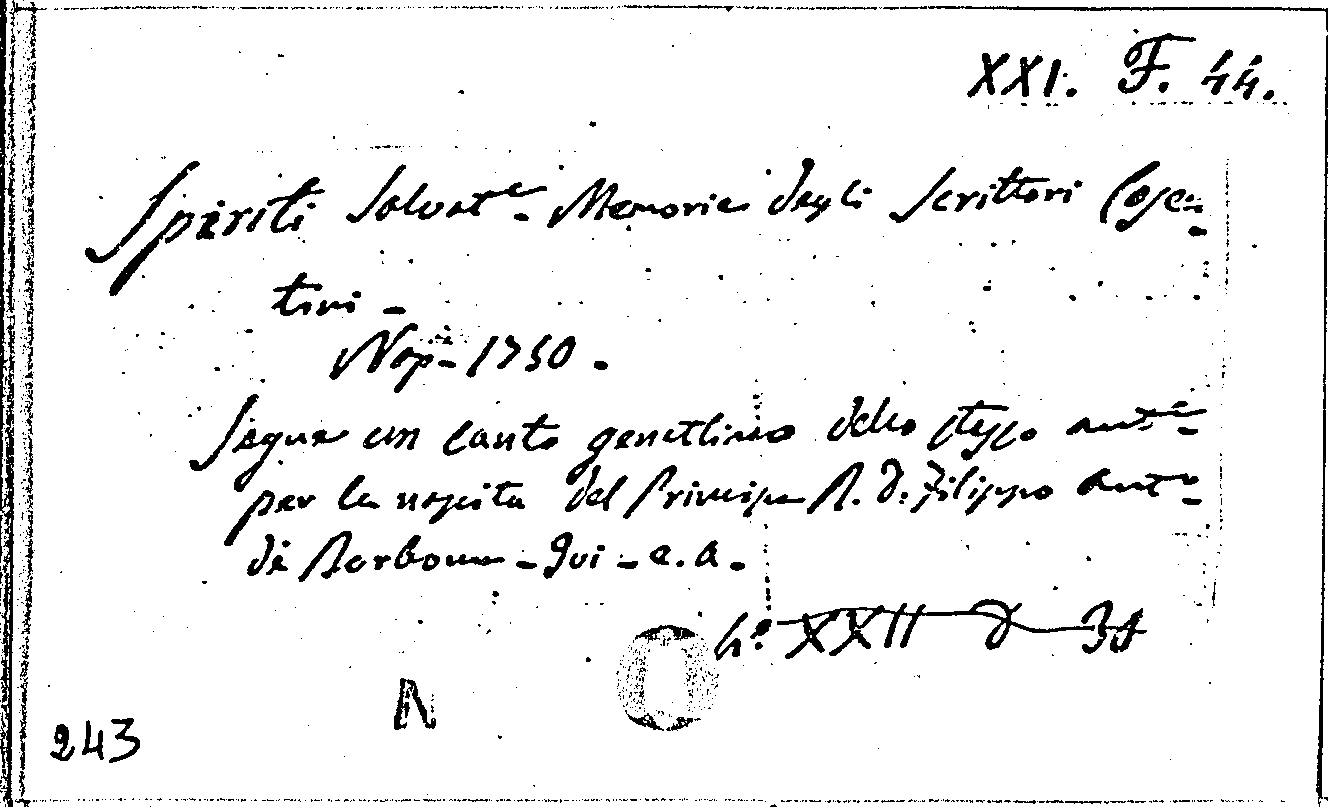 XXI. F. 44.
Spiriti Salvat.e - Memorie degli Scrittori Cosen-
tini -
Nap - 1750 -
Segue un canto genetliaco dello stesso aut.e
per la nascita del Principe R. D. Filippo Ant.o
di Borbone - Ivi - e. a.
4.° XXII D 39
N O
243